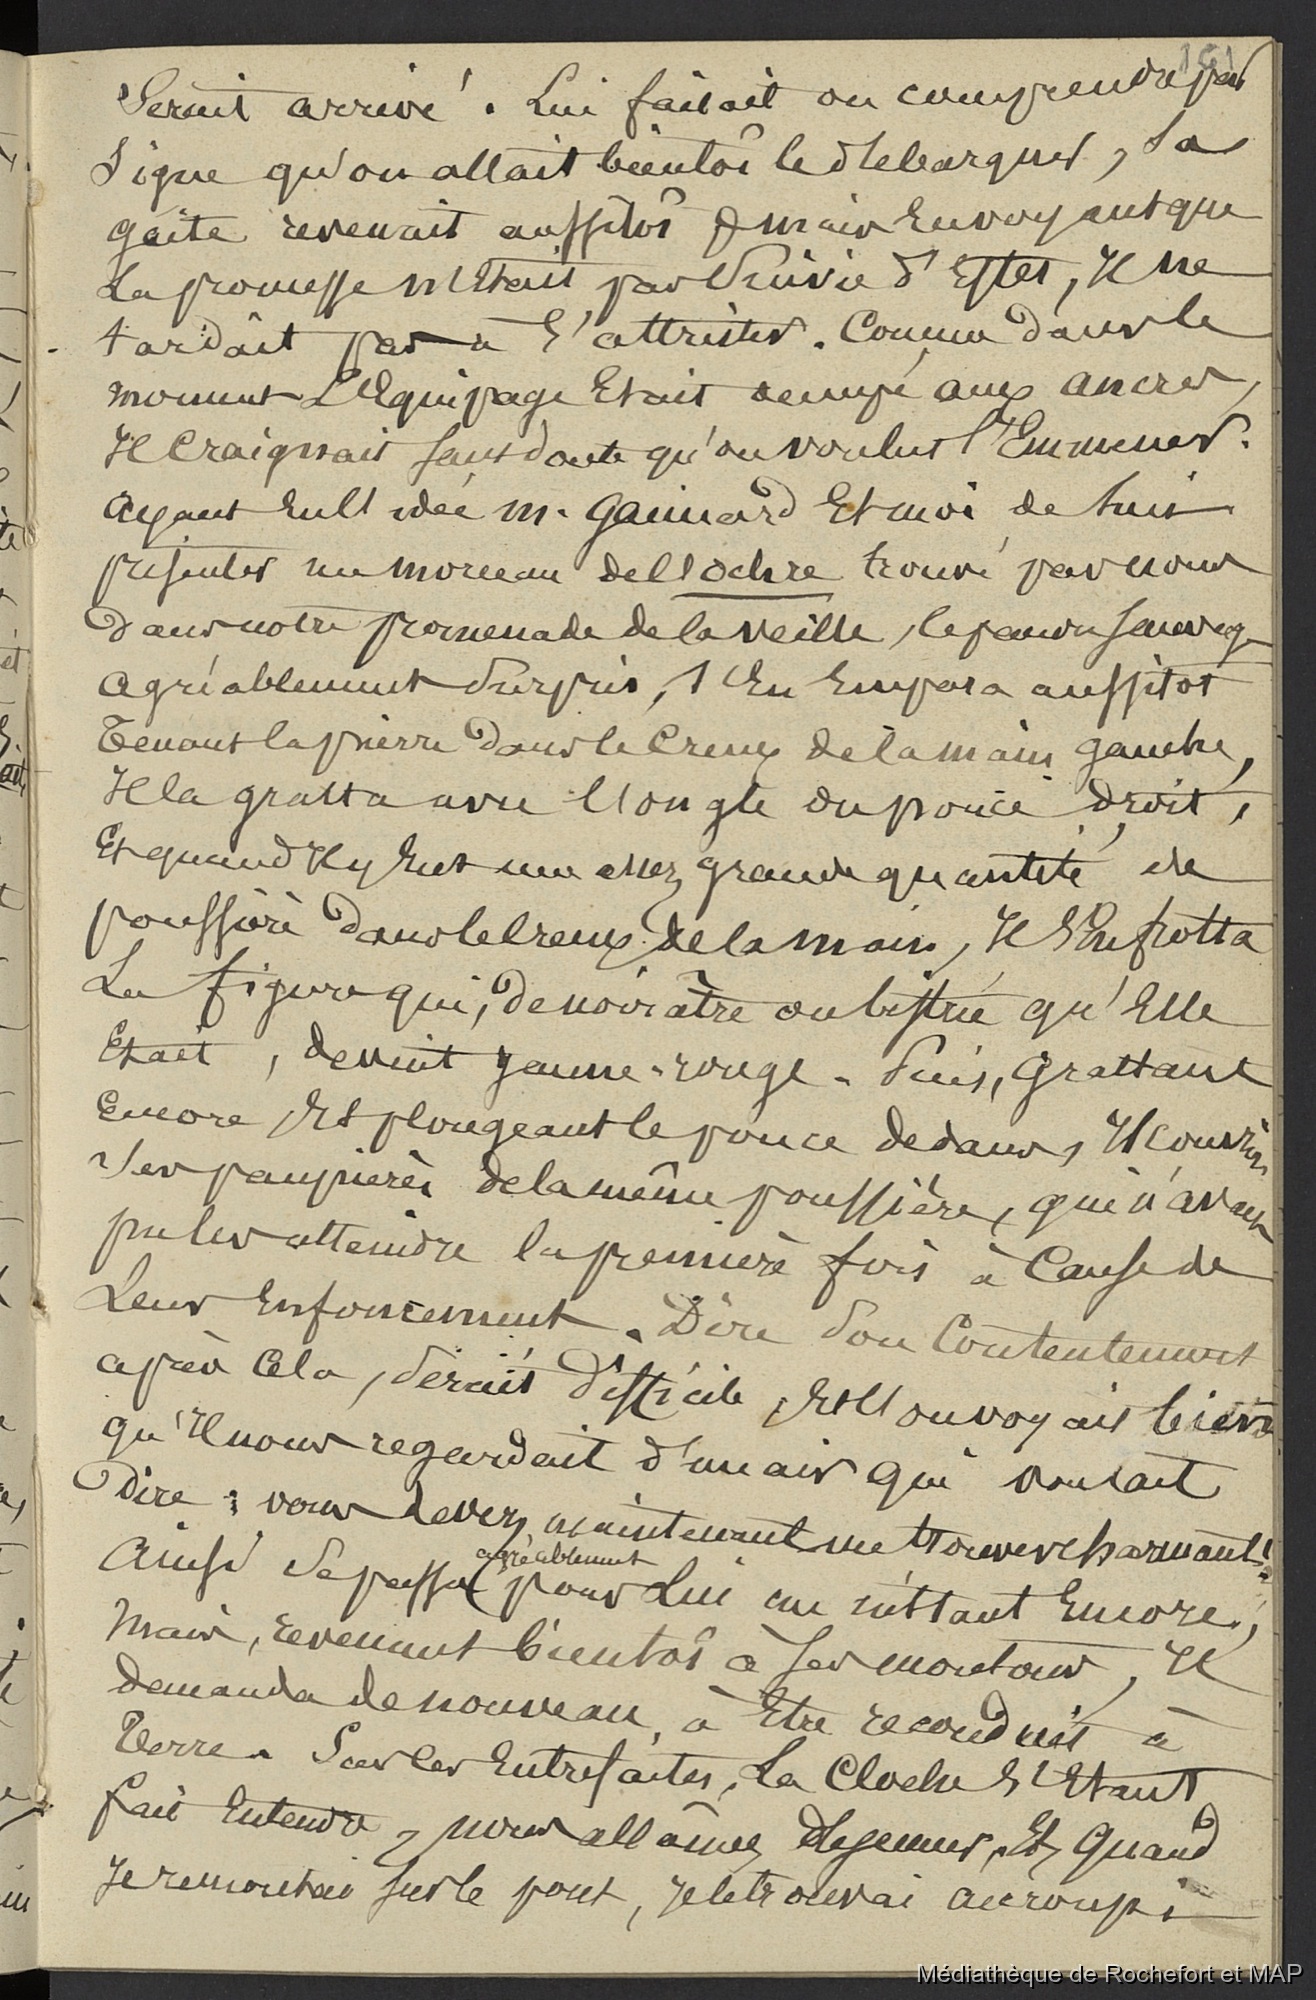 161
Serait arrivé. Lui faisait on comprendre par
Signe qu'on allait bientôt le débarquer, Sa
gaité revenait aussitôt ; mais En voyant que
La promesse n'Etait pas Suivie d'Effet, Il ne
tardait pas à S'attrister. Comme dans le
moment L'Equipage Etait occupé aux ancres,
Il Craignait sans doute qu'on voulut l'Emmener.
ayant Eu l'idée m. Gaimard Et moi de lui
présenter un morceau de l'ochre trouvé par nous
dans notre promenade de la veille, le pauvre sauvage
agréablement Surpris, s'En Empara aussitot
Tenant la pierre dans le Creux de la main gauche,
Il la gratta avec l'ongle du pouce droit,
Et quand Il y Eut une assez grande quantité de
poussière dans le Creux de la main, Il S'En frotta
La figure qui, de noirâtre ou bistrée qu'Elle
Etait, devint jaune-rouge. Puis, Grattant
Encore, Et plongeant le pouce dedans, Il couvrit
Ses paupières de la même poussière, qui n'avait
pu les atteindre la première fois à Cause de
Leur Enfoncement. Dire Son Contentement
après Cela, Serait difficile, Et l'on voyait bien
qu'Il nous regardait d'un air qui voulait
Dire : vous devez maintenant me trouver charmant !
Ainsi Se passa agréablement pour Lui un instant Encore,
Mais, revenant bientôt à Ses moutons, Il
demanda de nouveau à Etre reconduit à
Terre. Sur les Entrefaites, La Cloche S'Etant
fait Entendre, nous allâmes déjeuner, Et Quand
Je remontai sur le pont, je le trouvai accroupi
Médiathèque de Rochefort et MAP